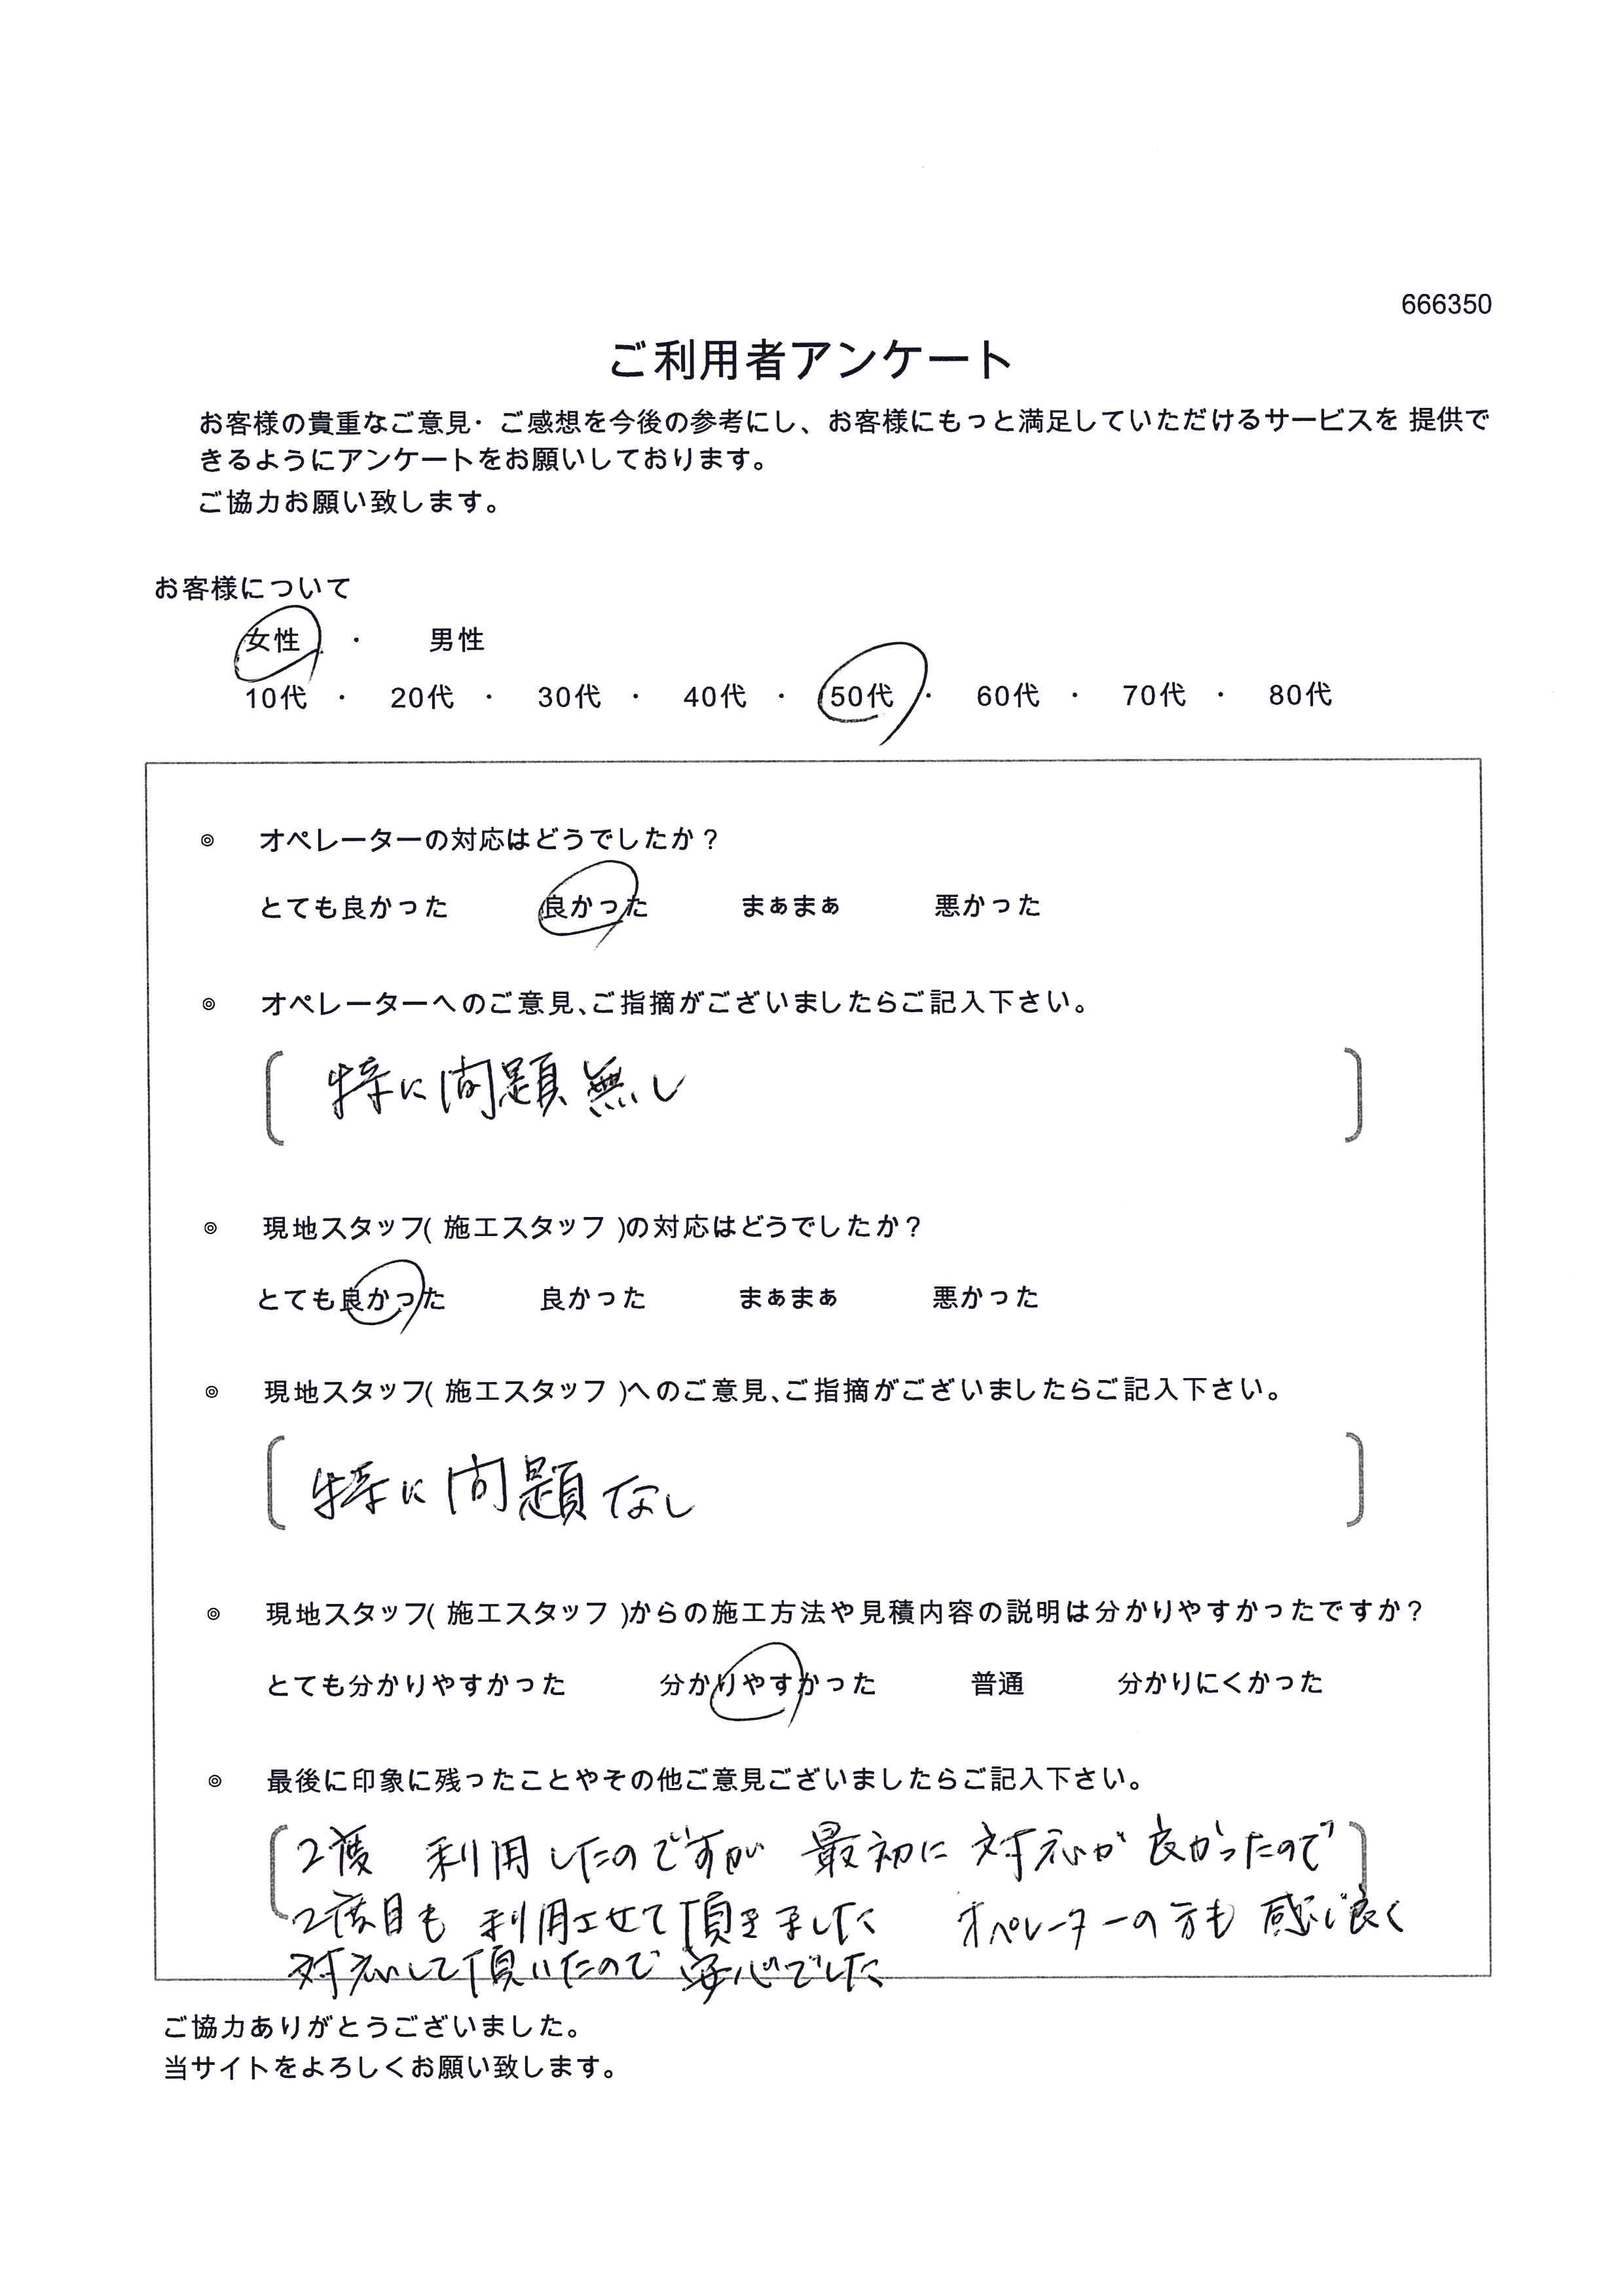 666350
ご利用者アンケート
お客様の貴重なご意見・ご感想を今後の参考にし、お客様にもっと満足していただけるサービスを 提供で
きるようにアンケートをお願いしております。
ご協力お願い致します。
お客様について
女性 ・ 男性
10代 ・ 20代 ・ 30代 ・ 40代 ・ 50代 ・ 60代 ・ 70代 ・ 80代
◎ オペレーターの対応はどうでしたか？
とても良かった 良かった まぁまぁ 悪かった
◎ オペレーターへのご意見、ご指摘がございましたらご記入下さい。
特に問題無し
◎ 現地スタッフ( 施工スタッフ )の対応はどうでしたか？
とても良かった 良かった まぁまぁ 悪かった
◎ 現地スタッフ( 施工スタッフ )へのご意見、ご指摘がございましたらご記入下さい。
特に問題なし
◎ 現地スタッフ( 施工スタッフ )からの施工方法や見積内容の説明は分かりやすかったですか？
とても分かりやすかった 分かりやすかった 普通 分かりにくかった
◎ 最後に印象に残ったことやその他ご意見ございましたらご記入下さい。
2度 利用したのですが 最初に 対応が 良かったので
2度目も 利用させて頂きました オペレーターの方も 感じ良く
対応して頂いたので 安心でした
ご協力ありがとうございました。
当サイトをよろしくお願い致します。